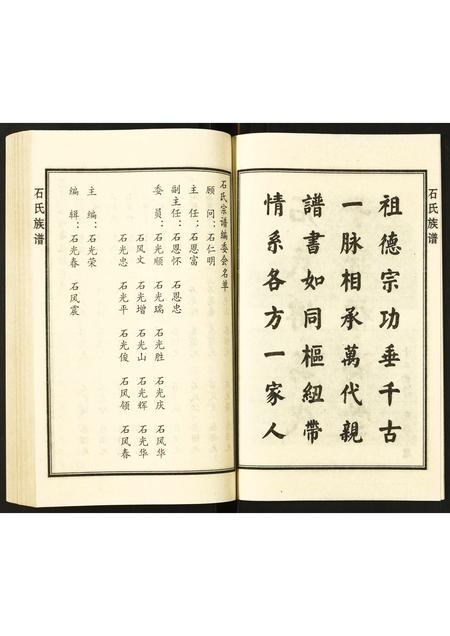 石氏族谱
祖德宗功垂千古
一脉相承萬代親
譜書如同樞紐帶
情系各方一家人
石氏宗谱编委会名单
顾问：石仁明
主任：石恩富
副主任：石恩怀 石恩忠
委员：石光顺 石光瑞 石光胜 石光庆 石风华
石风文 石光增 石光山 石光辉 石光华
石光忠 石光平 石光俊 石风领 石风春
主编：石光荣
编辑：石光春 石风震
石氏族谱